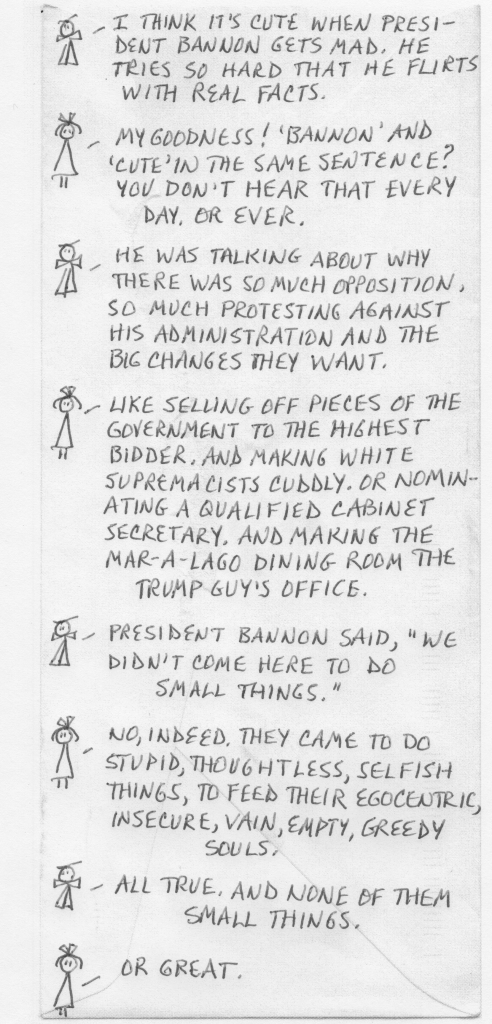 I THINK IT'S CUTE WHEN PRESI-
DENT BANNON GETS MAD. HE
TRIES SO HARD THAT HE FLIRTS
WITH REAL FACTS.
MY GOODNESS! 'BANNON' AND
'CUTE' IN THE SAME SENTENCE?
YOU DON'T HEAR THAT EVERY
DAY. OR EVER.
HE WAS TALKING ABOUT WHY
THERE WAS SO MUCH OPPOSITION,
SO MUCH PROTESTING AGAINST
HIS ADMINISTRATION AND THE
BIG CHANGES THEY WANT.
LIKE SELLING OFF PIECES OF THE
GOVERNMENT TO THE HIGHEST
BIDDER. AND MAKING WHITE
SUPREMACISTS CUDDLY. OR NOMIN-
ATING A QUALIFIED CABINET
SECRETARY. AND MAKING THE
MAR-A-LAGO DINING ROOM THE
TRUMP GUY'S OFFICE.
PRESIDENT BANNON SAID, "WE
DIDN'T COME HERE TO DO
SMALL THINGS."
NO, INDEED. THEY CAME TO DO
STUPID, THOUGHTLESS, SELFISH
THINGS, TO FEED THEIR EGOCENTRIC,
INSECURE, VAIN, EMPTY, GREEDY
SOULS.
ALL TRUE. AND NONE OF THEM
SMALL THINGS.
OR GREAT.